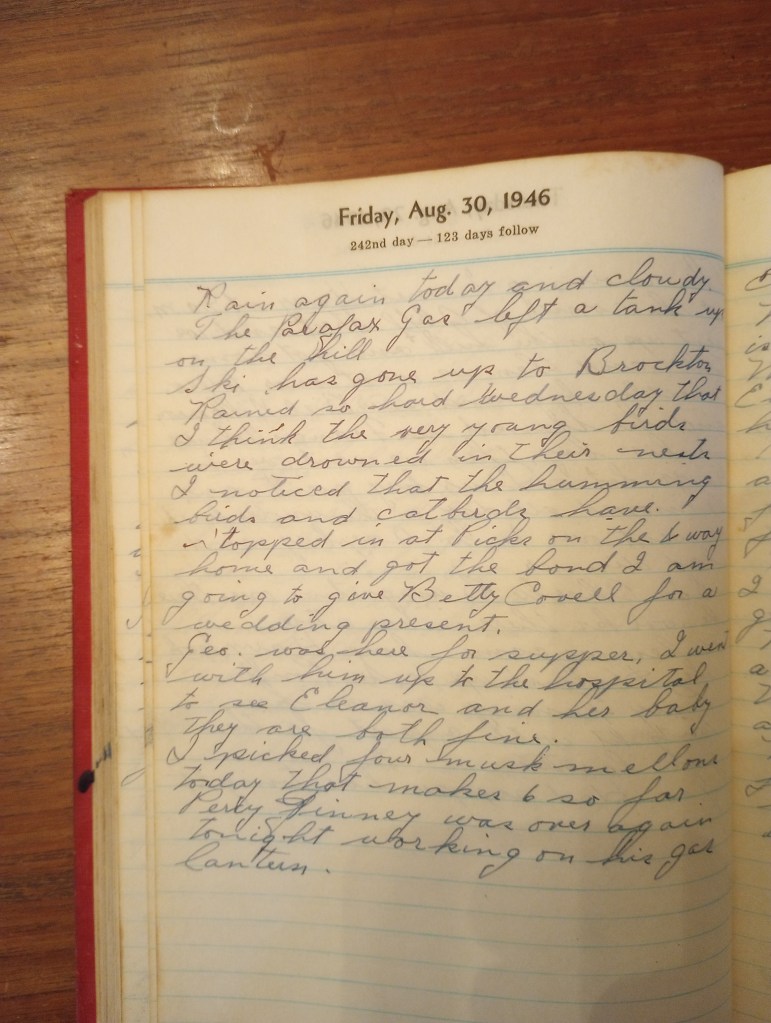 Friday, Aug. 30, 1946
242nd day — 123 days follow
Rain again today and cloudy
The Parafax Gas left a tank up
on the hill
Ski has gone up to Brockton
Rained so hard Wednesday that
I think the very young birds
were drowned in their nests
I noticed that the humming
birds and catbirds have.
Stopped in at Picks on the way
home and got the bond I am
going to give Betty Covell for a
wedding present.
Geo. was here for supper, I went
with him up to the hospital
to see Eleanor and her baby
they are both fine.
I picked four musk mellons
today that makes 6 so far
Percy Ginney was over again
tonight working on his gas
lantern.